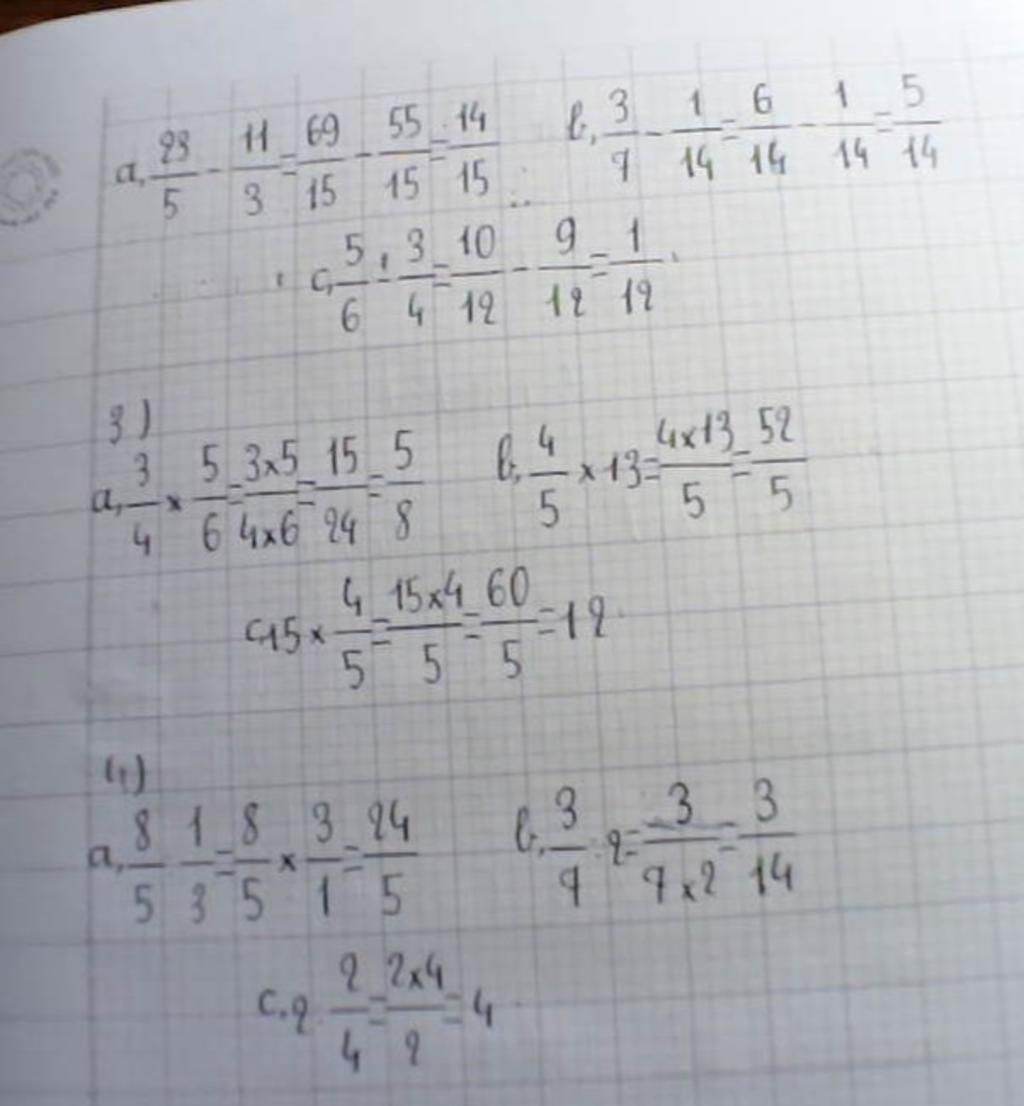 a, 23/5 - 11/3 = 69/15 - 55/15 = 14/15 b, 3/7 - 1/14 = 6/14 - 1/14 = 5/14
c, 5/6 - 3/4 = 10/12 - 9/12 = 1/12
3)
a, 3/4 x 5/6 = 3x5/4x6 = 15/24 = 5/8 b, 4/5 x 13 = 4x13/5 = 52/5
c, 15 x 4/5 = 15x4/5 = 60/5 = 12
4)
a, 8/5 1/3 = 8/5 x 3/1 = 24/5 b, 3/7 : 2 = 3/7x2 = 3/14
c. 2 2/4 = 2x4/2 = 4